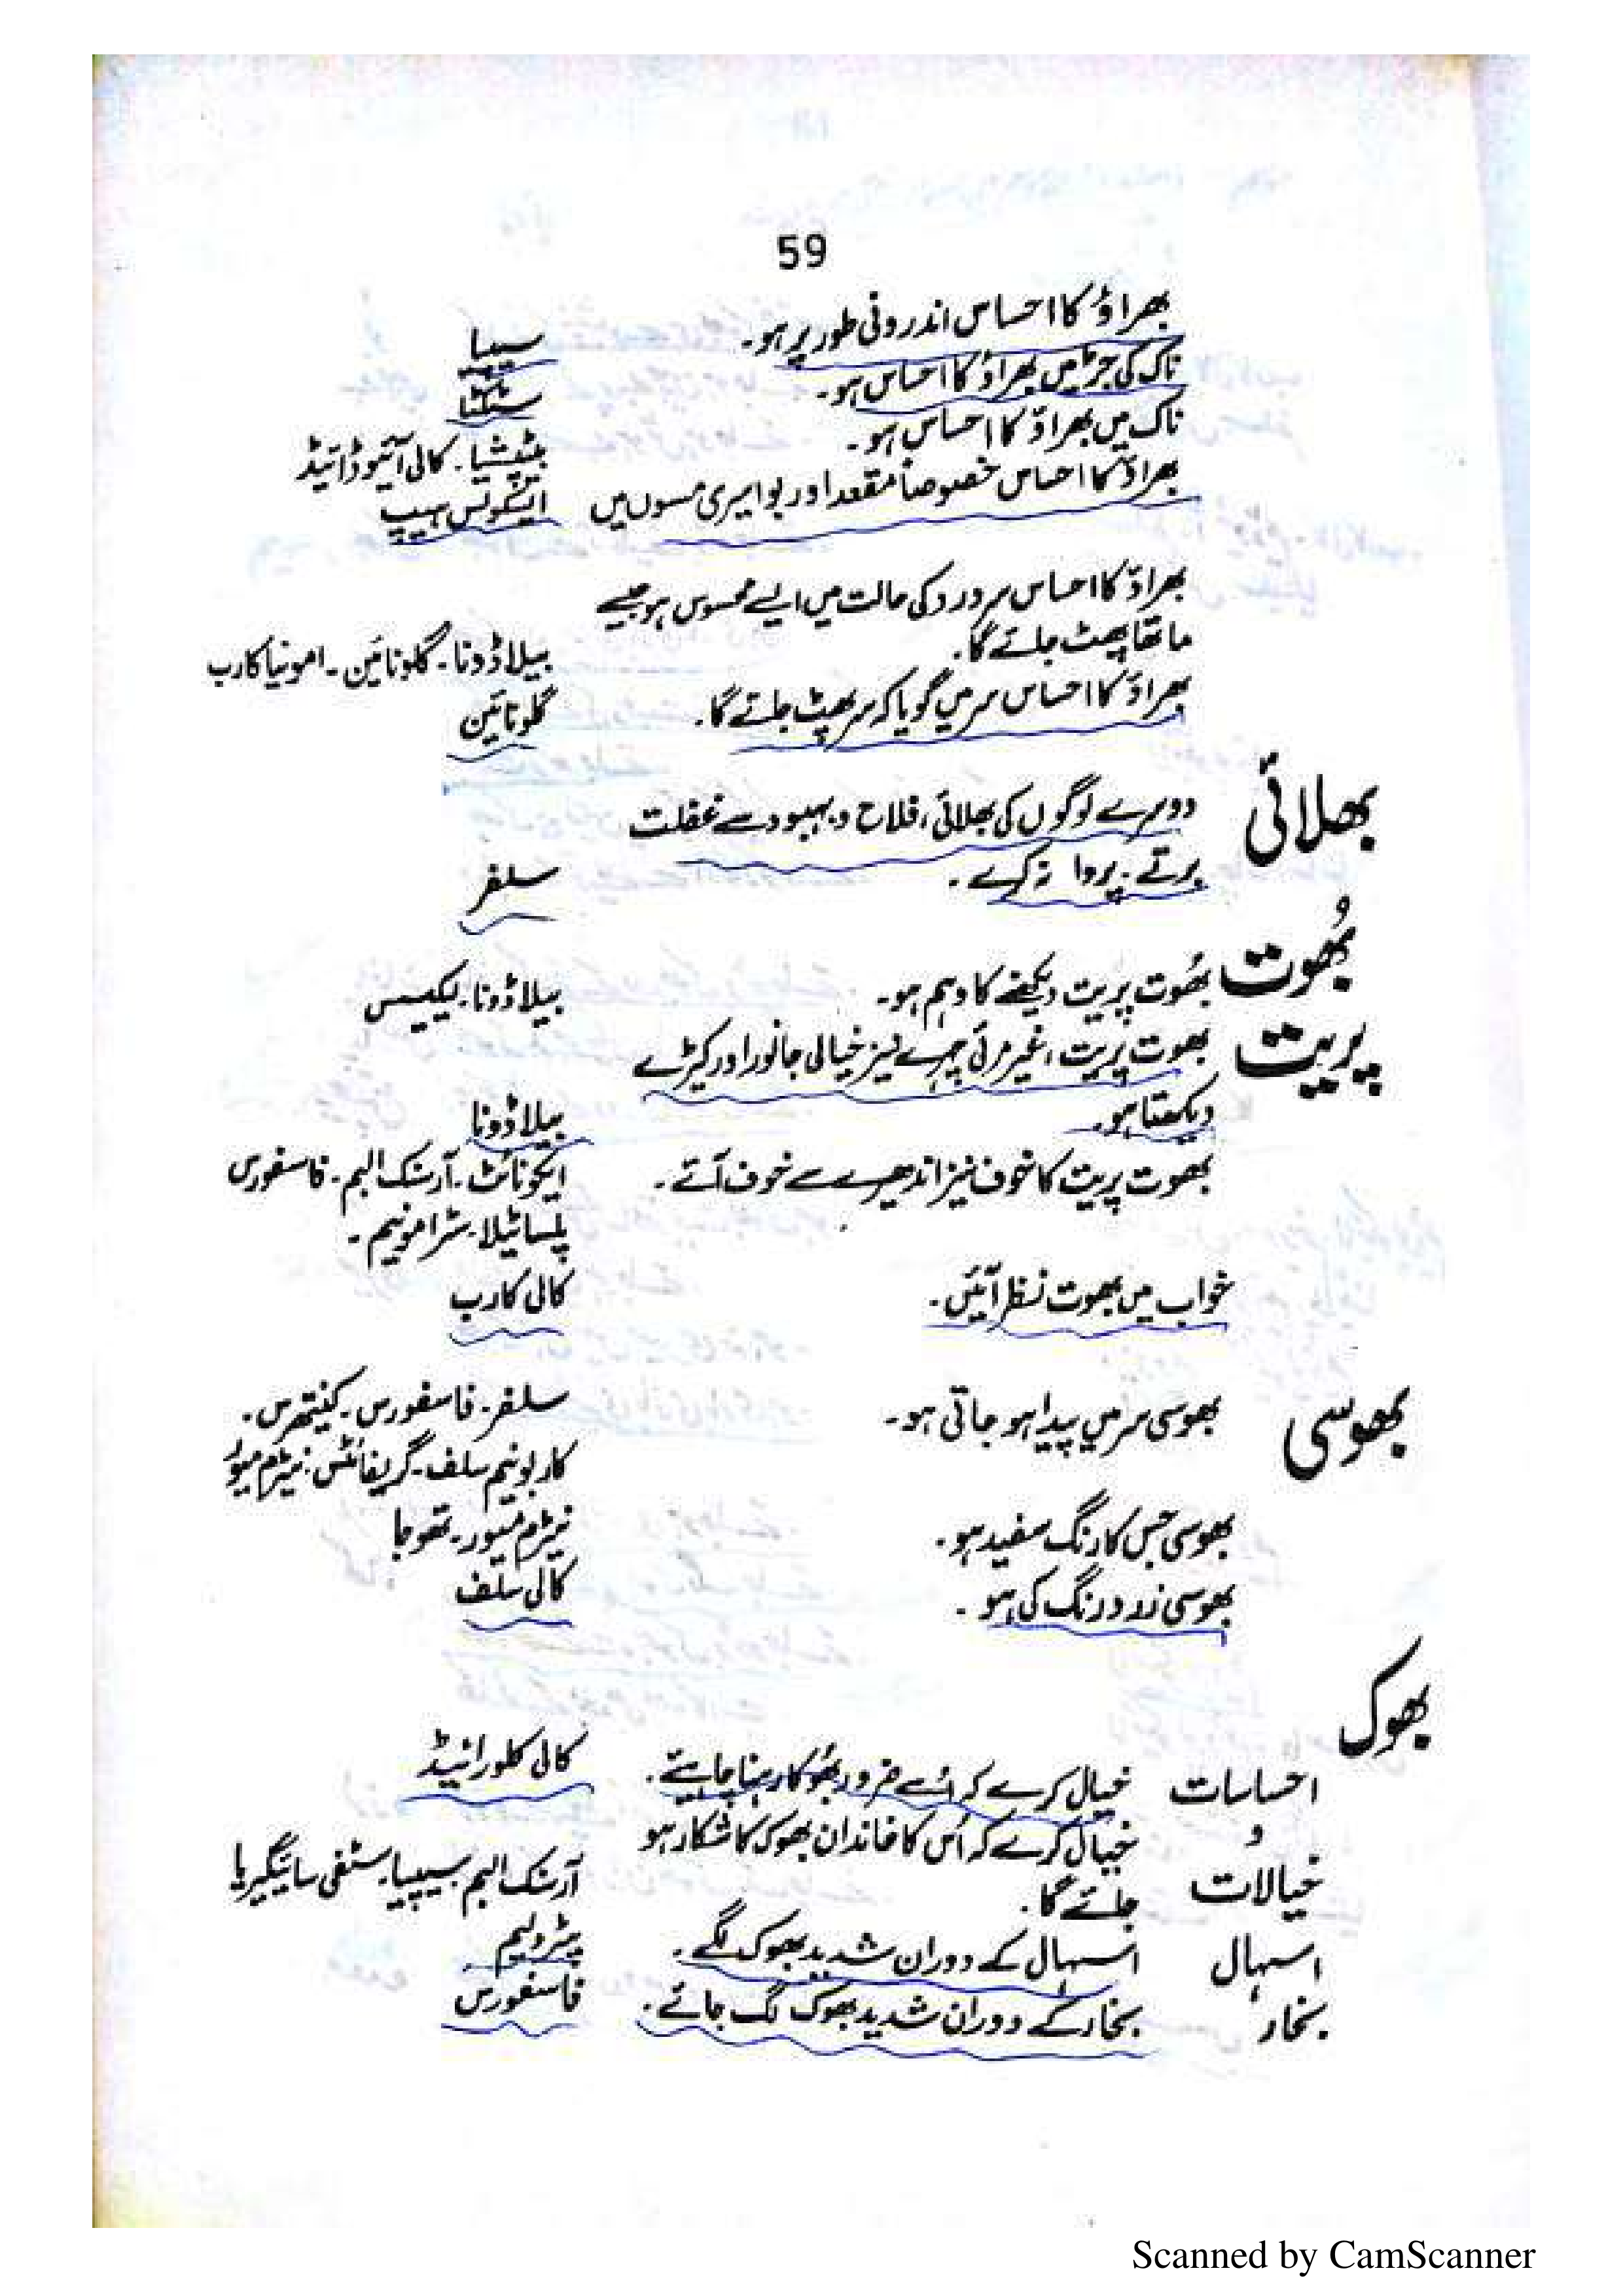 59
بھراؤ کا احساس اندرونی طور پر ہو۔ سیپیا
ناک کی جڑ میں بھراؤ کا احساس ہو۔ سٹکٹا
ناک میں بھراؤ کا احساس ہو۔ بیپٹیشیا۔ کالی آئیوڈائیڈ
بھراؤ کا احساس خصوصاً مقعد اور بواسیری مسوں میں ایسکولس ہیپ
بھراؤ کا احساس سر درد کی حالت میں ایسے محسوس ہو جیسے
ماتھا پھٹ جائے گا۔ بیلاڈونا۔ گلونائین۔ امونیا کارب
بھراؤ کا احساس سر میں گویا کہ سر پھٹ جائے گا۔ گلونائین
بھلائی دوسرے لوگوں کی بھلائی، فلاح و بہبود سے غفلت
برتے۔ پروا نہ کرے۔ سلفر
بھُوت و پریت بھُوت پریت دیکھنے کا وہم ہو۔ بیلاڈونا۔ لیکیسس
بھوت پریت، غیر مرئی چہرے نیز خیالی جانور اور کیڑے
دیکھتا ہو۔ بیلاڈونا
بھوت پریت کا خوف نیز اندھیرے سے خوف آئے۔ ایکونائٹ۔ آرسنک البم۔ فاسفورس
پلساٹیلا۔ سٹرامونیم۔
خواب میں بھوت نظر آئیں۔ کالی کارب
بھوسی بھوسی سر میں پیدا ہو جاتی ہو۔ سلفر۔ فاسفورس۔ کینتھرس۔
کاربونیم سلف۔ گریفائٹس۔ نیٹرم میور
بھوسی جس کا رنگ سفید ہو۔ نیٹرم میور۔ تھوجا
بھوسی زرد رنگ کی ہو۔ کالی سلف
بھوک
احساسات خیال کرے کہ اُسے ضرور بھُوکا رہنا چاہیئے۔ کالی کلورائیڈ
و خیالات خیال کرے کہ اُس کا خاندان بھوک کا شکار ہو
جائے گا۔ آرسنک البم۔ سیپیا۔ سٹفی سائیگیریا
اسہال اسہال کے دوران شدید بھوک لگے۔ پٹرولیم
بخار بخار کے دوران شدید بھوک لگ جائے۔ فاسفورس
Scanned by CamScanner